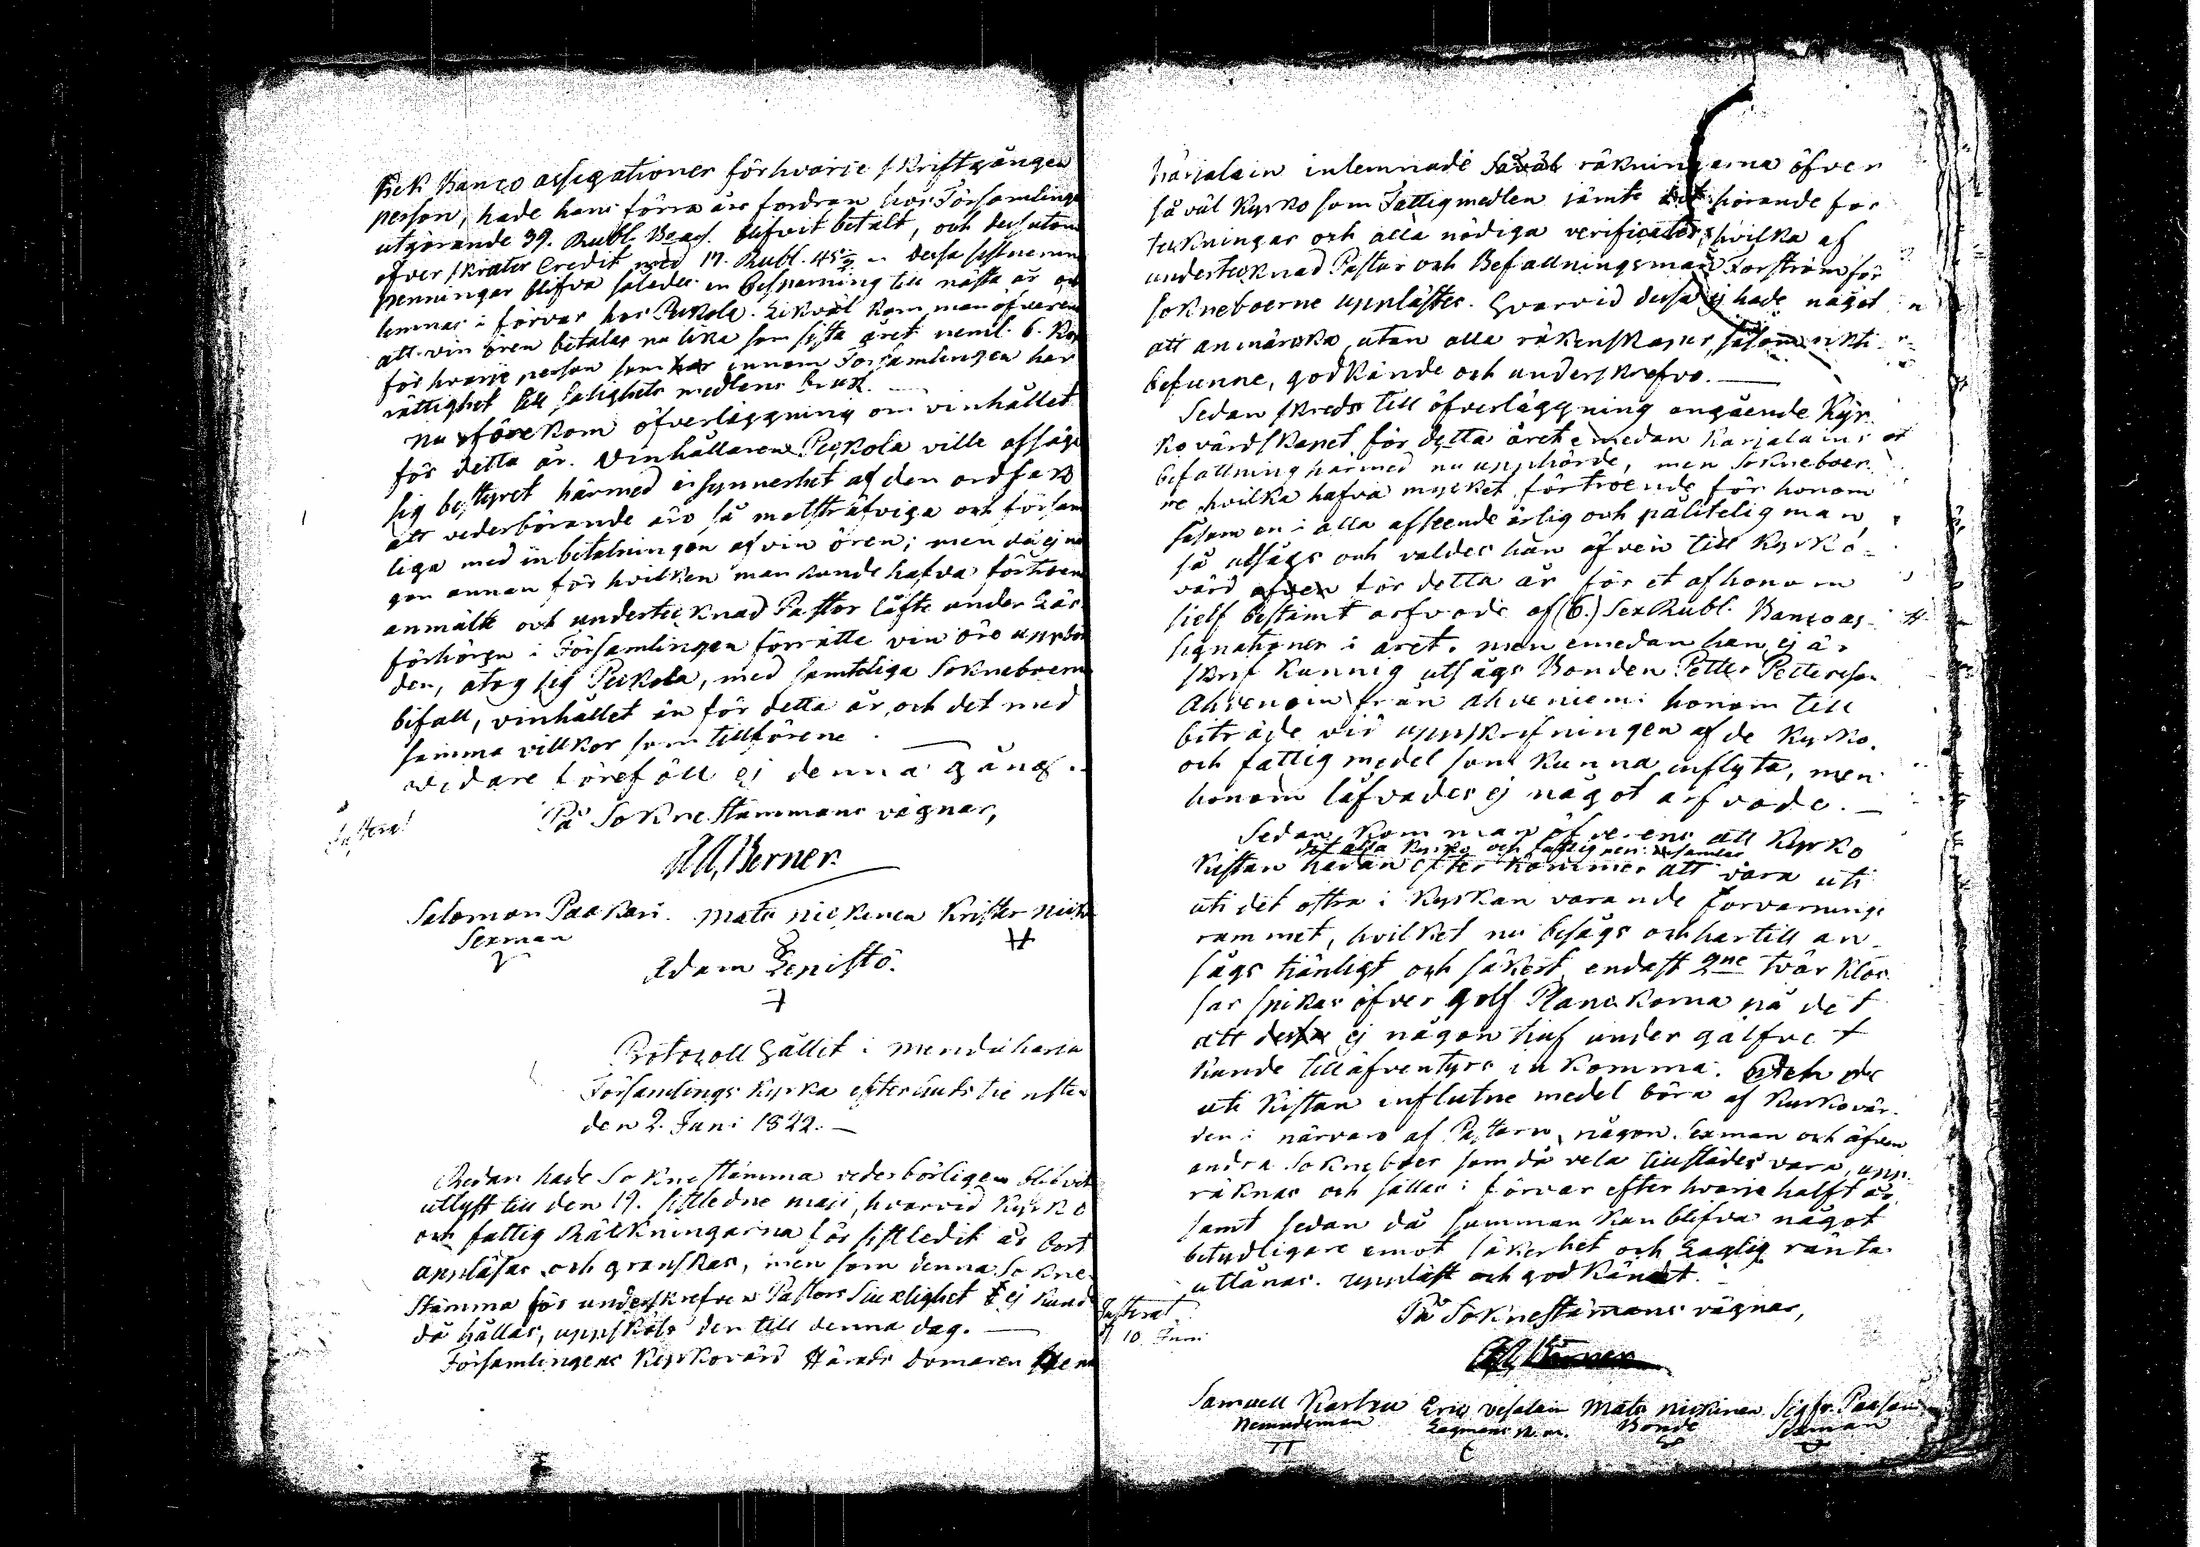 Kek Banco assignationer för hvarje skriftgången
person, hade hans förra års fordran hos Församlinge
utgörande 39. Rubl. B: ass. blifvit betalt, och dessutom
öfverskråter Credit med 17. Rubl. 45 dessa sistnemn
penningar blifva således en besparning till nästa år och
lemnas i förvar hos Peikola. Likväl kom man öfverens
att vin ören betalas nu lika som sista året neml. 6. Kop
för hvarje person som innom Församlingen har
rättighet till Salighets medlens bruk.
Nu förekom öfverläggning om vinhållet
för detta år. Vinhållaren Peikola ville afsäga
sig bestyret härmed i synnerhet af den ordsak
att vederbörande äro så motsträfviga och försum
liga med inbetalningen af vin ören; men då ej nå
gon annan för hvilken man kunde hafva förtroen
anmälte och undertecknad Pastor låfte under Läs
förhören i Församlingen förrätta vin öre uppbör
den, åtog sig Peikola, med samteliga Sokneboerne
bifall, vinhållet än för detta år, och det med
samma villkor som tillförene.
vidare föreföll ej denna gång.
På Soknestammans vägnar,
Justerat
A. A. Berner.
Salomon Paakari. Mats Nickinen Krister
Sexman
Adam Lenistö.
Protocoll hållit i Mendüharju
Församlings Kyrka efter Gudstiensten
den 2. Juni 1822.
Redan hade Soknestämma vederbörligen blifvit
utlyst till den 19. sistledne maji, hvarvid Kyrko
och fattig Räkningarna för sistledit år bort
uppläsas och granskas, men som denna Sokne-
Stämma för underskrefven Pastors Siuklighet ej kund
då hållas, uppsköts den till denna dag.
Församlingens Kyrkovärd Härads domaren
Karjalain inlemnade räkningarna öfver
så väl Kyrko som Fattigmedlen jämte hörande for
teckningar och alla nödiga verificater, hvilka af
undertecknad Pastor och Befallningsman Forström för
Sokneboerne upplästes. Hvarvid dessa ej hade något
att anmärcka, utan alla räkenskaper, såsom rikti
befunne, godkände och underskrefvo.
Sedan skreds till öfverläggning angående Kyr
kovärdskapet för detta året emedan Karjalains
befattning härmed nu upphörde, men Sokneboer
ne hvilka hafva mycket förtroende för honom
såsom en i alla afseende ärlig och pålitelig man,
så utsågs och valdes han äfven till Kyrko-
värd för detta år för et af honom
sielf bestämt arfvode af (6.) Sex Rubl. Banco as-
signationer i året. men emedan han ej är
skrif kunnig utsågs Bonden Petter Petersson
Ahvenain från Ahveniemi honom till
biträde vid uppskrifningen af de Kyrko-
och fattigmedel som kunna inflyta, men
honom låfvades ej något arfvode.
Sedan kom man öfverens att Kyrko
det alla Kyrko och fattig pen: samlas
Kistan hädan efter kommer att vara uti
uti det östra i Kyrkan varande förvarnings
rummet, hvilket nu besågs och härtill an-
sågs tiänligt och säkert, endast 2ne tvär klos
sar spikas öfver golf Planckorna på det
att ej någon tiuf under gålfvet
kunde till äfventyrs in komma. de
uti Kistan influtne medel böra af Kyrkovär-
den i närvaro af Pastorn, någon Sexman och äfven
andra Sokneboer som då vela tillstädes vara, upp-
räknas och sättas i förvar efter hvarje halft år
samt sedan då summan kan blifva något
betydligare emot säkerhet och Laglig ränta
utlånas. Uppläst och godkändt.
På Soknestämans vägnar,
Justerat
d. 10 Juni
A. A. Berner
Samuel Karhu Eric Vesalain Mats Nickinen Sigfr. Paasain
Nemndeman Lagmans N. m. Bonde Sexman